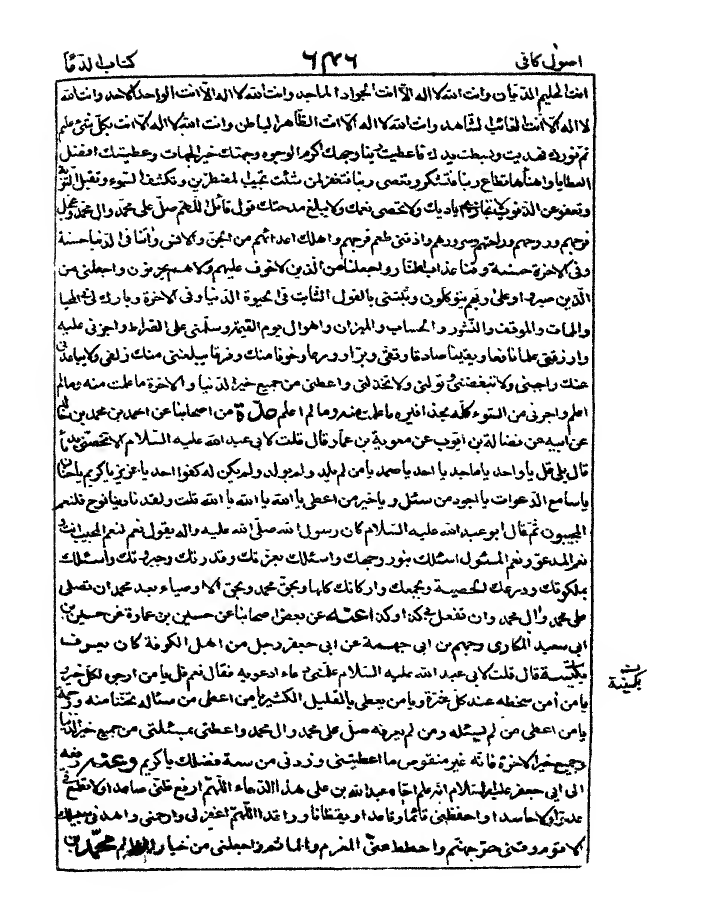 اصول كافى ٦٣٦ كتاب الدعا
انت الحليم الديان وانت الله لا اله الا انت الجواد الماجد وانت الله لا اله الا انت الواحد الاحد وانت الله
لا اله الا انت الغائب الشاهد وانت الله لا اله الا انت الظاهر الباطن وانت الله لا اله الا انت بكل شئ عليم
تم نورك فهديت وبسطت يدك فاعطيت ربنا وجهك اكرم الوجوه وجهتك خير الجهات وعطيتك افضل
العطايا واهنأها تطاع ربنا فتشكر وتعصى ربنا فتغفر لمن شئت تجيب المضطرين وتكشف السوء وتقبل التوبة
وتعفو عن الذنوب لا تجازى اياديك ولا تحصى نعمك ولا يبلغ مدحتك قول قائل اللهم صل على محمد وال محمد وعجل
فرجهم وروحهم وراحتهم وسرورهم واذقنى طعم فرجهم واهلك اعدائهم من الجن والانس واتنا فى الدنيا حسنة
وفى الاخرة حسنة وقنا عذاب النار واجعلنا من الذين لا خوف عليهم ولا هم يحزنون واجعلنى من
الذين صبروا وعلى ربهم يتوكلون وثبتنى بالقول الثابت فى الحيوة الدنيا وفى الاخرة وبارك لى فى المحيا
والممات والموقف والنشور والحساب والميزان واهوال يوم القيمة وسلمنى على الصراط واجزنى عليه
وارزقنى علما نافعا ويقينا صادقا وتقى وبرا وورعا وخوفا منك وفرقا يبلغنى منك زلفى ولا يباعدنى
عنك واحبنى ولا تبغضنى وتولنى ولا تخذلنى واعطنى من جميع خير الدنيا والاخرة ما علمت منه وما لم
اعلم واجرنى من السوء كله بحذافيره ما علمت منه وما لم اعلم عدة من اصحابنا عن احمد بن محمد بن خالد
عن ابيه عن فضالة بن ايوب عن معوية بن عمار قال قلت لابى عبد الله عليه السلام الا تخصنى بدعا
قال بلى قل يا واحد يا ماجد يا احد يا صمد يا من لم يلد ولم يولد ولم يكن له كفوا احد يا عزيز يا كريم يا حنان
يا سامع الدعوات يا اجود من سئل ويا خير من اعطى يا الله يا الله يا الله قلت ولقد نادينا نوح فلنعم
المجيبون ثم قال ابو عبد الله عليه السلام كان رسول الله صلى الله عليه واله يقول نعم لنعم المجيب انت و
نعم المدعو ونعم المسئول اسئلك بنور وجهك واسئلك بعزتك وقدرتك وجبروتك واسئلك
بملكوتك ودرعك الحصينة وبجمعك واركانك كلها وبحق محمد وبحق الاوصياء بعد محمد ان تصلى
على محمد وال محمد وان تفعل بى كذا وكذا عنه عن بعض اصحابنا عن حسين بن عمارة عن حسين بن
ابى سعيد المكارى وجهم بن ابى جهمة عن ابى جعفر رجل من اهل الكوفة كان يعرف
بكنيته قال قلت لابى عبد الله عليه السلام علمنى دعاء ادعو به فقال نعم قل يا من ارجوه لكل خير و
يا من آمن سخطه عند كل عثرة ويا من يعطى بالقليل الكثير يا من اعطى من سئاله تحننا منه ورحمة
يا من اعطى من لم يسئله ومن لم يعرفه صل على محمد وال محمد واعطنى بمسئلتى من جميع خير الدنيا
وجميع خير الاخرة فانه غير منقوص ما اعطيتنى وزدنى من سعة فضلك يا كريم وعنه رفعه
الى ابى جعفر عليه السلام انه علم اخاه عبد الله بن على هذا الدعاء اللهم ارفع ظنى صاعدا ولا تطمع فى
عدوا ولا حاسدا واحفظنى قائما وقاعدا ويقظانا وراقدا اللهم اغفر لى وارحمنى واهدنى سبيلك
الاقوم وقنى حر جهنم واحطط عنى المغرم والمأثم واجعلنى من خيار العالم محمد بن
بكنيته